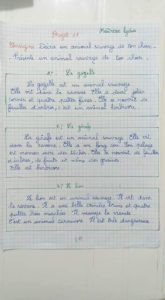 Maîtresse Lydia
Projet 2
Consigne : Décris un animal sauvage de ton choix.
Présente un animal sauvage de ton choix.
1) La gazelle
La gazelle est un animal sauvage.
Elle vit dans la savane. Elle a deux jolies
cornes et quatre pattes fines. Elle se nourrit de
feuilles d'arbres, c'est un animal herbivore.
2) La girafe
La girafe est un animal sauvage. Elle vit
dans la savane. Elle a un long cou
et
d'arbres, de fruits et même
Elle est herbivore.
3) Le lion
Le lion est un animal sauvage. Il vit dans
la savane. Il a une belle crinière brune et quatre
pattes très musclées. Il mange la viande.
C'est un animal carnivore. Il est très dangereux.